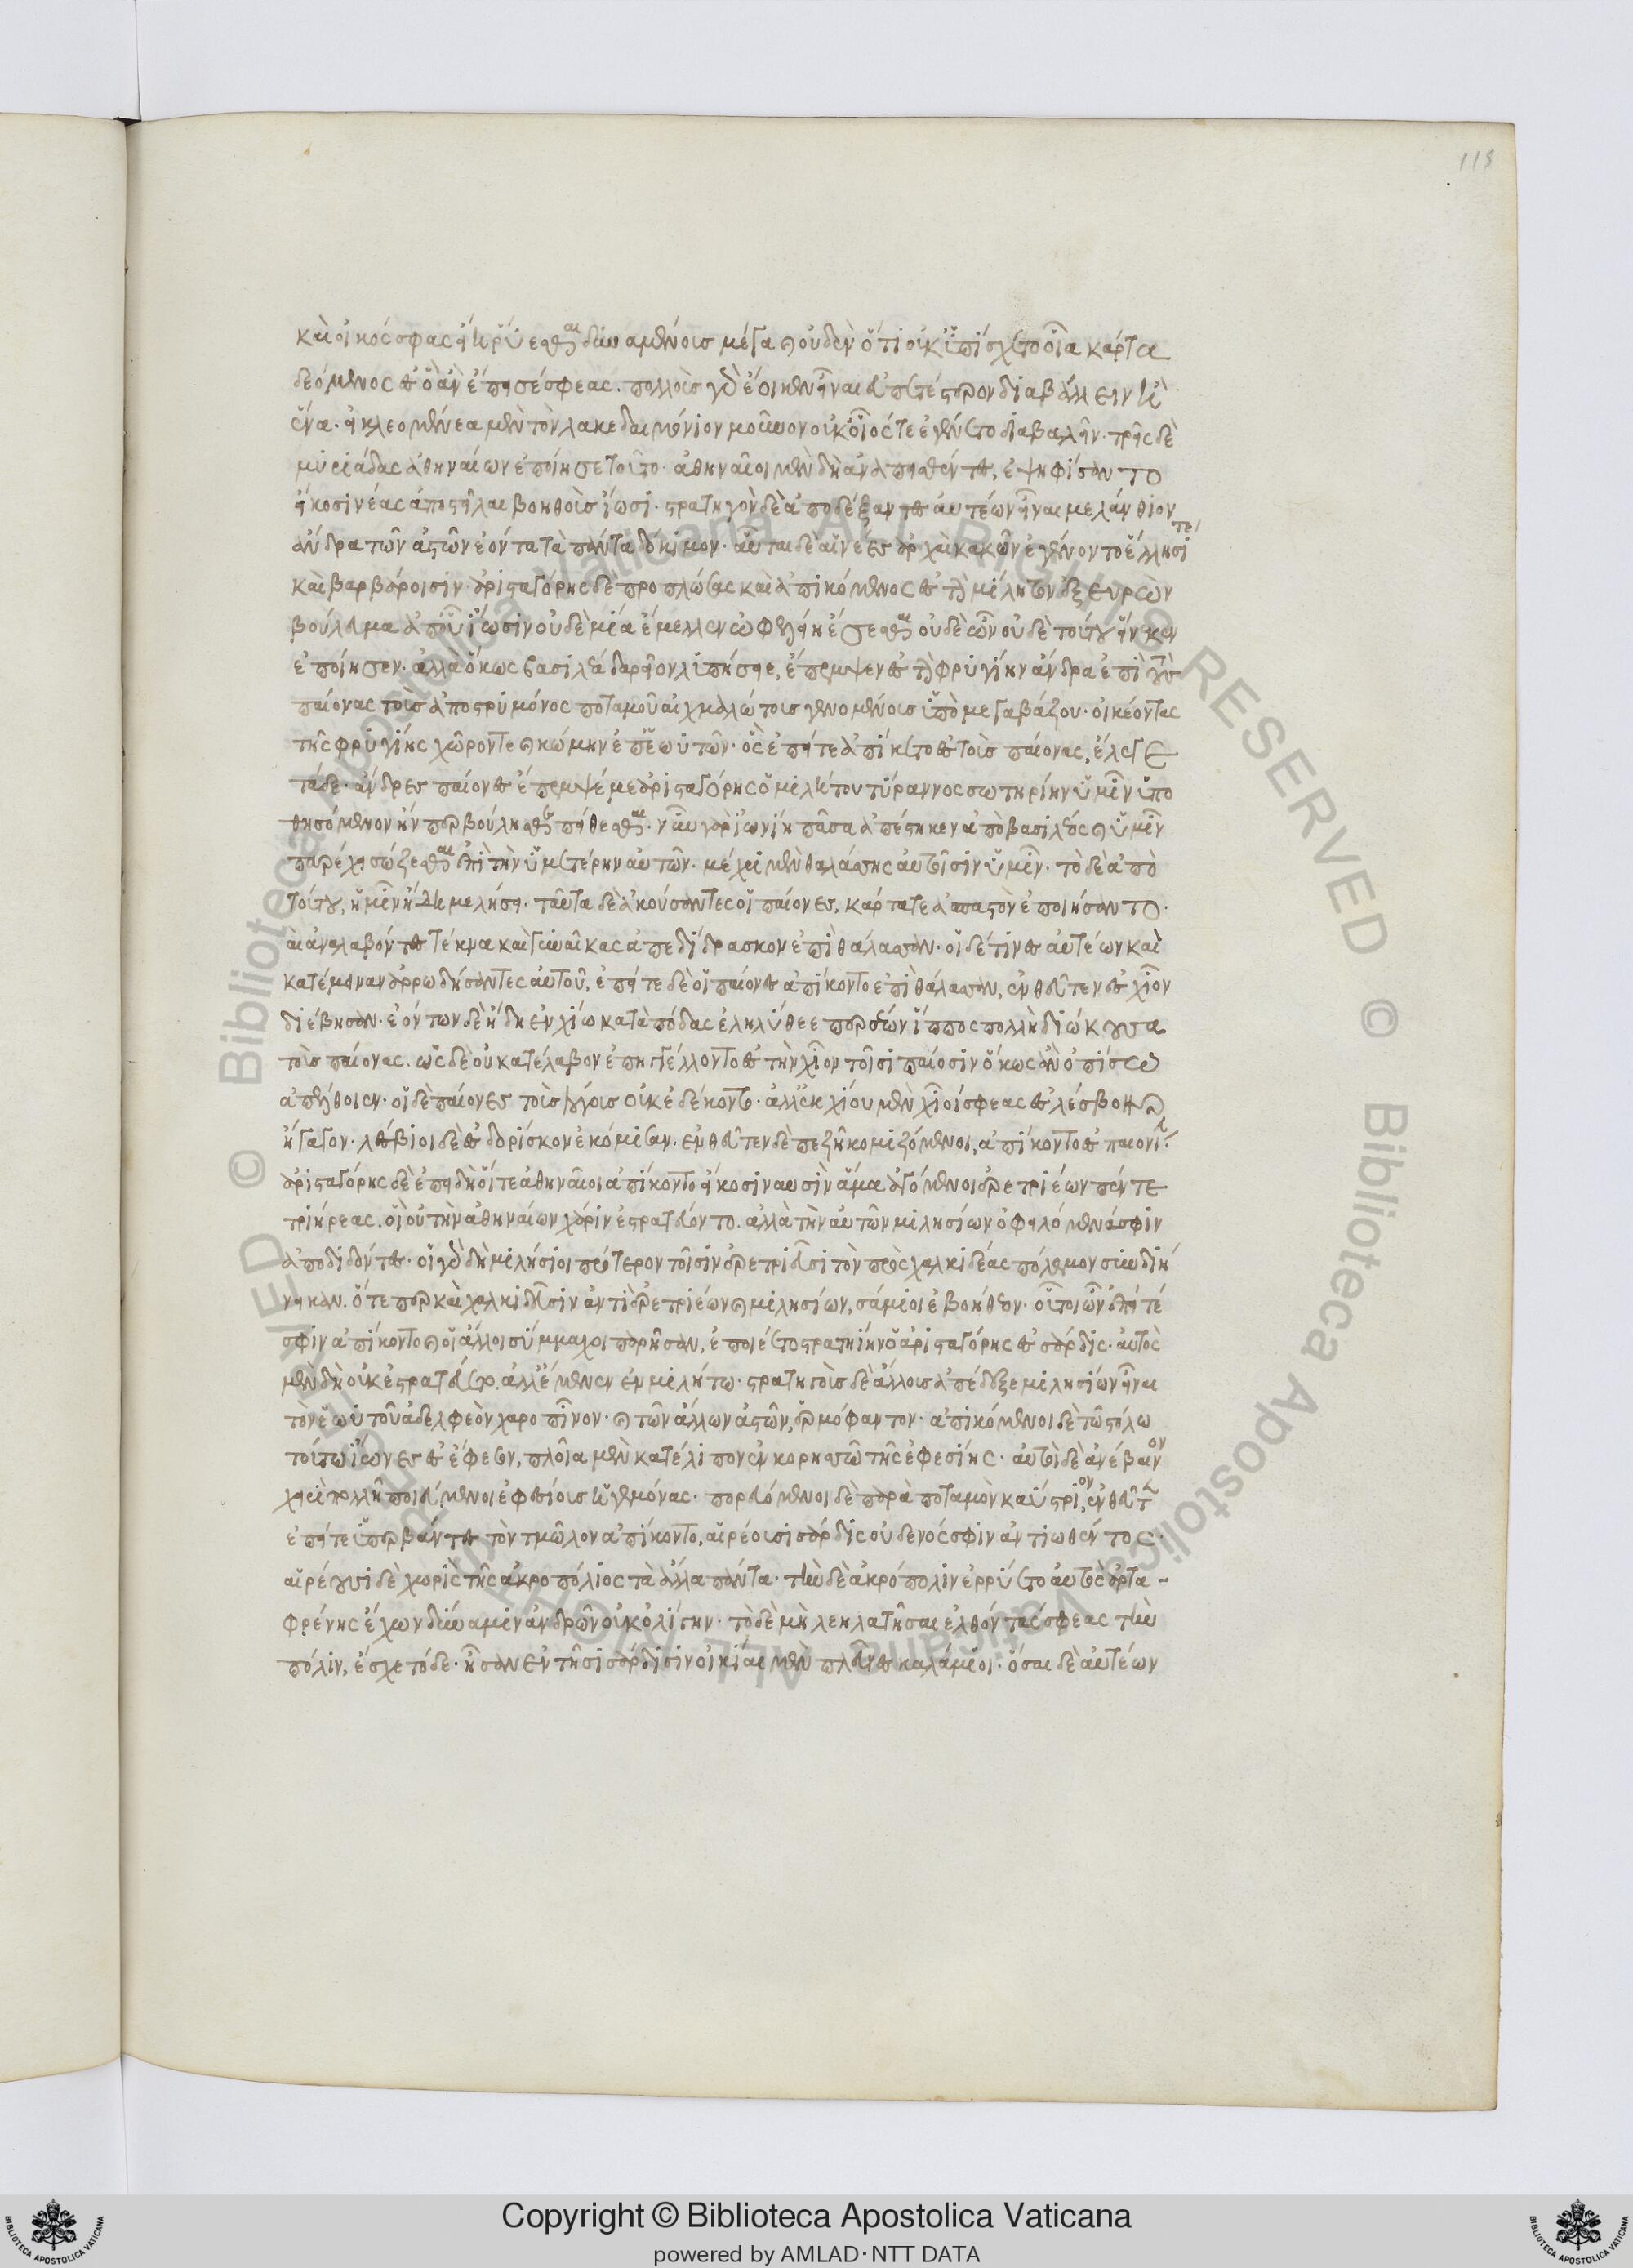 καὶ οἰκός σφας εἴη ῥύεσθαι δυναμένους μέγα καὶ οὐδὲν ὅτι οὐκ ὑπίσχετο οἷα κάρτα
δεόμενος ἐς ὃ ἀνέπεισέ σφεας. πολλοὺς γὰρ ἔοικεν εἶναι εὐπετέστερον διαβάλλειν ἢ
ἕνα. εἰ κλεομένεα μὲν τὸν λακεδαιμόνιον μοῦνον οὐκ οἷός τε ἐγένετο διαβαλεῖν. τρεῖς δὲ
μυριάδας ἀθηναίων ἐποίησε τοῦτο. ἀθηναῖοι μὲν δὴ ἀναπεισθέντες, ἐψηφίσαντο
εἴκοσι νέας ἀποστεῖλαι βοηθοὺς ἴωσι. στρατηγὸν δὲ ἀποδέξαντες αὐτέων εἶναι μελάνθιον
ἄνδρα τῶν ἀστῶν ἐόντα τὰ πάντα δόκιμον. αὗται δὲ αἱ νέες ἀρχὴ κακῶν ἐγένοντο ἕλλησί τε
καὶ βαρβάροισιν. ἀρισταγόρης δὲ προπλώσας καὶ ἀπικόμενος ἐς τὴν μίλητον ἐξευρὼν
βούλευμα ἀπ' οὗ ἴωσιν οὐδεμία ἔμελλεν ὠφελείη ἔσεσθαι οὐδὲ ὦν οὐδὲ τούτου εἵνεκεν
ἐποίησεν. ἀλλὰ ὅκως βασιλέα δαρεῖον λυπήσῃ, ἔπεμψεν ἐς τὴν φρυγίην ἄνδρα ἐπὶ τοὺς
παίονας τοὺς ἀπὸ στρυμόνος ποταμοῦ αἰχμαλώτους γενομένους ὑπὸ μεγαβάζου. οἰκέοντας
τῆς φρυγίης χῶρόν τε καὶ κώμην ἐπ' ἑωυτῶν. ὃς ἐπείτε ἀπίκετο ἐς τοὺς παίονας, ἔλεγε
τάδε. ἄνδρες παίονες ἔπεμψέ με ἀρισταγόρης ὁ μιλήτου τύραννος σωτηρίην ὑμῖν ὑπο
θησόμενον ἤν περ βούλησθε πείθεσθαι. νῦν γὰρ ἰωνίη πᾶσα ἀπέστηκεν ἀπὸ βασιλέος καὶ ὑμῖν
παρέχει σώζεσθαι ἐπὶ τὴν ὑμετέρην αὐτῶν. μέχρι μὲν θαλάσσης αὐτοῖσιν ὑμῖν. τὸ δὲ ἀπὸ
τούτου, ἡμῖν ἤδη μελήσει. ταῦτα δὲ ἀκούσαντες οἱ παίονες, κάρτα τε ἀσπαστὸν ἐποιήσαντο.
καὶ ἀναλαβόντες τέκνα καὶ γυναῖκας ἀπεδίδρασκον ἐπὶ θάλασσαν. οἱ δέ τινες αὐτέων καὶ
κατέμειναν ἀρρωδήσαντες αὐτοῦ, ἐπείτε δὲ οἱ παίονες ἀπίκοντο ἐπὶ θάλασσαν, ἐνθεῦτεν ἐς χῖον
διέβησαν. ἐόντων δὲ ἤδη ἐν χίω κατὰ πόδας ἐληλύθεε περσέων ἵππος πολλὴ διώκουσα
τοὺς παίονας. ὡς δὲ οὐ κατέλαβον ἐπηγγέλλοντο ἐς τὴν χῖον τοῖσι παίοσιν ὅκως ἂν ὀπίσω
ἀπέλθοιεν. οἱ δὲ παίονες τοὺς λόγους οὐκ ἐδέκοντο. ἀλλ' ἐκ χίου μὲν χῖοί σφεας ἐς λέσβον
ἤγαγον. λέσβιοι δὲ ἐς δορίσκον ἐκόμισαν. ἐνθεῦτεν δὲ πεζῇ κομιζόμενοι, ἀπίκοντο ἐς παιονί.
ἀρισταγόρης δὲ ἐπειδὴ οἵ τε ἀθηναῖοι ἀπίκοντο εἴκοσι νηυσὶν ἅμα ἀγόμενοι ἐρετριέων πέντε
τριήρεας. οἳ οὐ τὴν ἀθηναίων χάριν ἐστρατεύοντο. ἀλλὰ τὴν αὐτῶν μιλησίων ὀφειλόμενά σφιν
ἀποδιδόντες. οἱ γὰρ δὴ μιλήσιοι πρότερον τοῖσιν ἐρετριεῦσι τὸν πρὸς χαλκιδέας πόλεμον συνδιή
νεικαν. ὅτε περ καὶ χαλκιδεῦσιν ἀντὶ ἐρετριέων καὶ μιλησίων, σάμιοι ἐβοήθεον. οὗτοι ὦν ἐπείτέ
σφιν ἀπίκοντο καὶ οἱ ἄλλοι σύμμαχοι παρῆσαν, ἐποιέετο στρατηίην ὁ ἀρισταγόρης ἐς σάρδις. αὐτὸς
μὲν δὴ οὐκ ἐστρατεύετο. ἀλλ' ἔμενεν ἐν μιλήτω. στρατηγοὺς δὲ ἄλλους ἀπέδεξε μιλησίων εἶναι
τὸν ἑωυτοῦ ἀδελφεὸν χαροπῖνον. καὶ τῶν ἄλλων ἀστῶν, ἑρμόφαντον. ἀπικόμενοι δὲ τῶ στόλω
τούτω ἴωνες ἐς ἔφεσον, πλοῖα μὲν κατέλιπον ἐν κορησσῶ τῆς ἐφεσίης. αὐτοὶ δὲ ἀνέβαινον
χειρὶ πολλῇ ποιεύμενοι ἐφεσίους ἡγεμόνας. πορευόμενοι δὲ παρὰ ποταμὸν καύστριον, ἐνθεῦτεν
ἐπείτε ὑπερβάντες τὸν τμῶλον ἀπίκοντο, αἱρέουσι σάρδις οὐδενός σφιν ἀντιωθέντος.
αἱρέουσι δὲ χωρὶς τῆς ἀκροπόλιος τὰ ἄλλα πάντα. τὴν δὲ ἀκρόπολιν ἐρρύετο αὐτὸς ἀρτα-
φρένης ἔχων δύναμιν ἀνδρῶν οὐκ ὀλίγην. τὸ δὲ μὴ λεηλατῆσαι ἐλθόντας σφεας τὴν
πόλιν, ἔσχε τόδε. ἦσαν ἐν τῇσι σάρδισιν οἰκίαι μὲν πλεῦνες καλάμιοι. ὅσαι δὲ αὐτέων